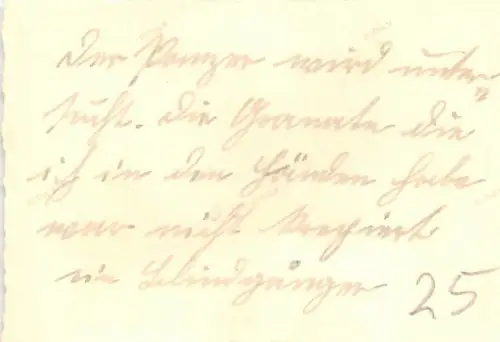 Der Panzer wird unter"
sucht. Die Granate die
ich in den Händen habe
war nicht krepiert
ein Blindgänger
25